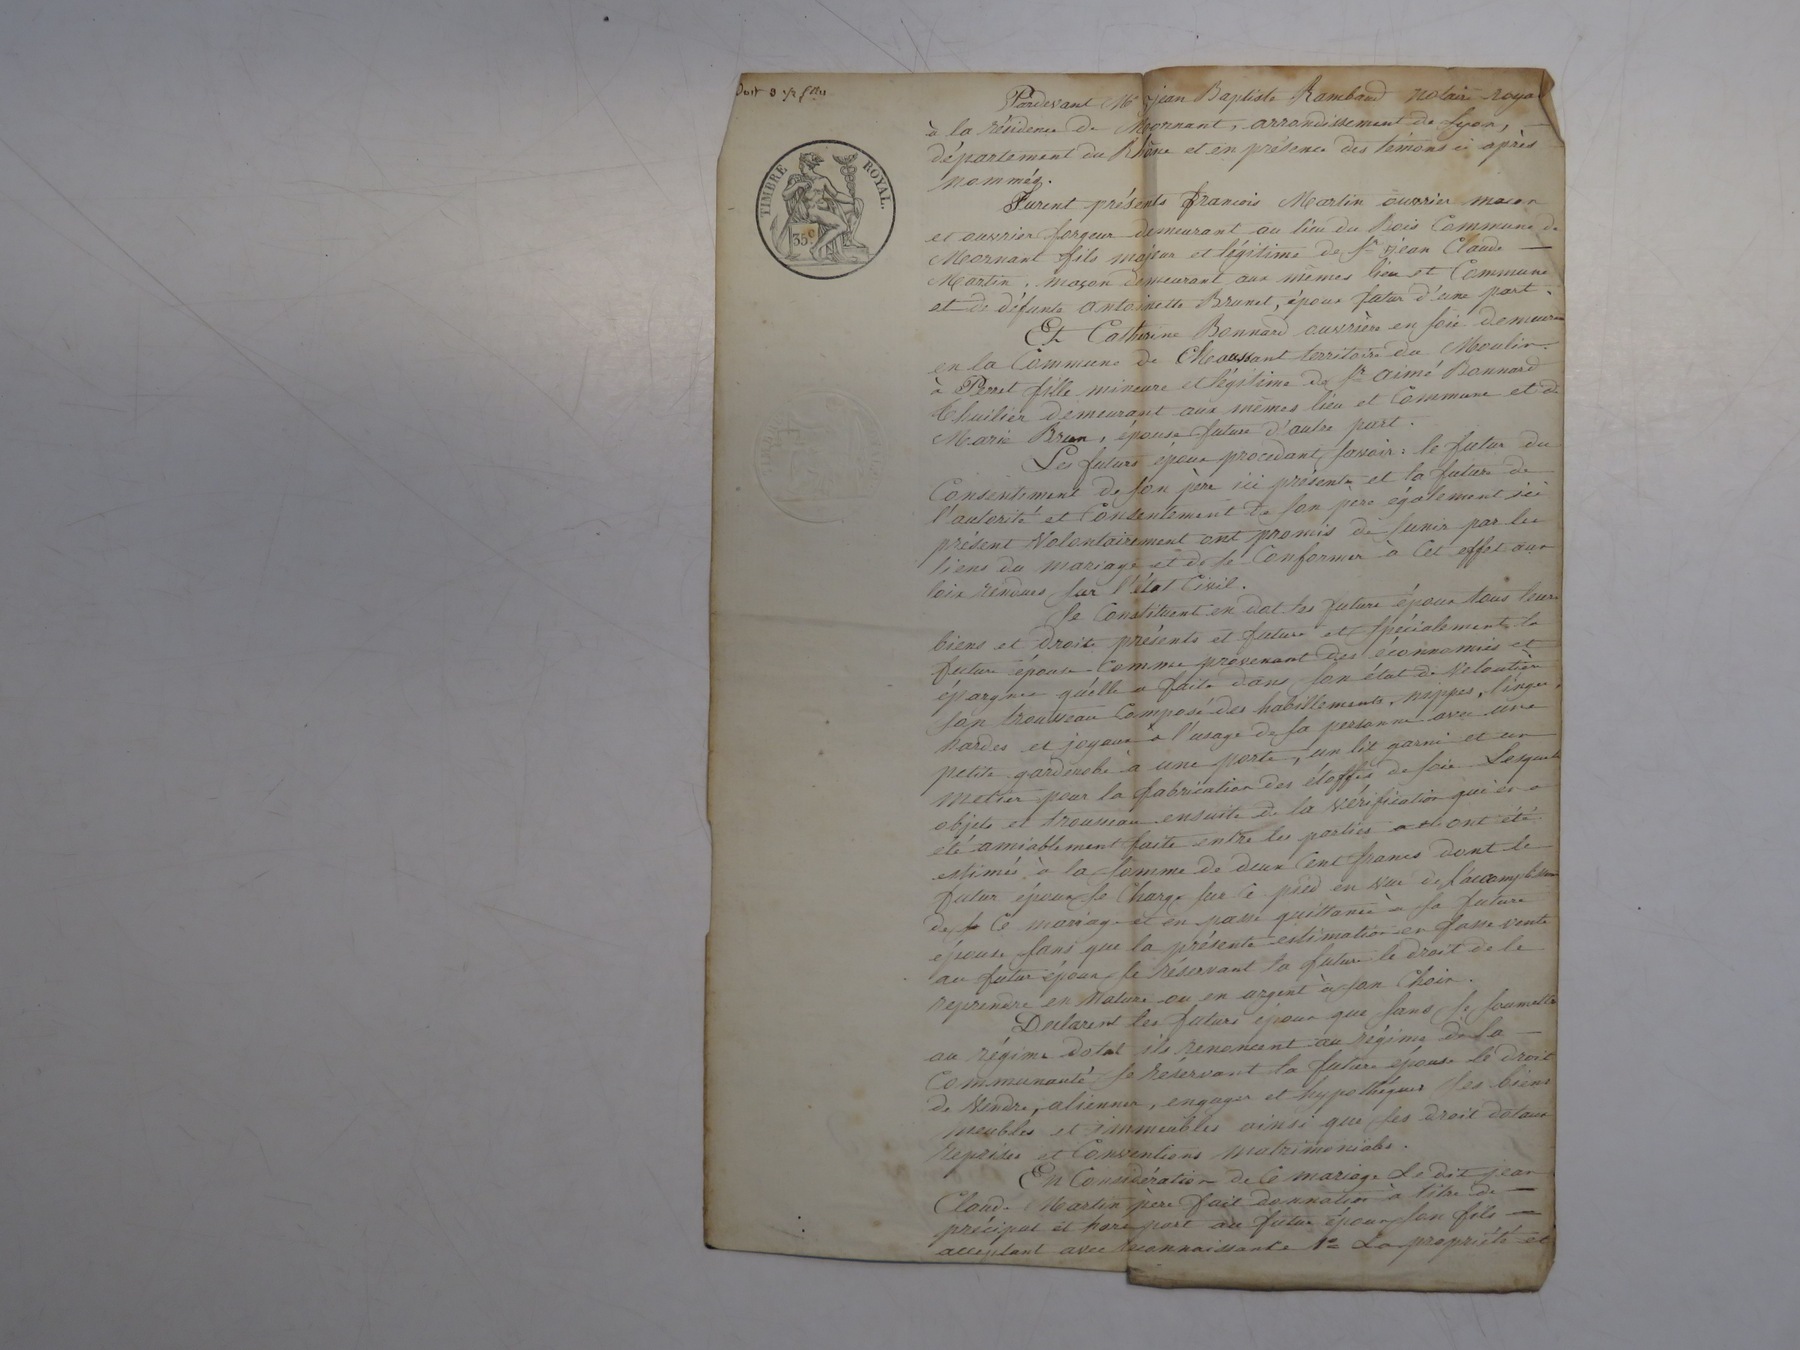 Doit 3 1/2 ffes
TIMBRE ROYAL.
35c
Pardevant Me jean Baptiste Rambaud notaire royal
à la résidence de Mornant, arrondissement de Lyon,
département du Rhône et en présence des témoins ci après
nommés.
Furent présents françois Martin ouvrier maçon
et ouvrier forgeur demeurant au lieu du Bois Commune de
Mornant fils majeur et légitime de Sr jean Claude
Martin, maçon demeurant aux mêmes lieu et Commune
et de défunte antoinette Brunet, époux futur d'une part.
Et Catherine Bonnard ouvrière en soie demeurant
en la Commune de Chaussant territoire du Moulin
à Perret fille mineure et légitime de Sr aimé Bonnard
thuilier demeurant aux mêmes lieu et Commune et de
Marie Brun, épouse future d'autre part.
Les futurs époux procedant, savoir: le futur du
Consentement de son père ici présent et la future de
l'autorité et Consentement de son père également ici
présent Volontairement ont promis de s'unir par les
liens du mariage et de se Conformer à Cet effet aux
loix rendues sur l'état Civil.
Se Constituent en dot les futurs époux tous leurs
biens et droits présents et futurs et spécialement la
future épouse Comme provenant des économies et
épargnes qu'elle a faite dans son état de Veloutière
son trousseau Composé des habillements, nippes, linges,
hardes et joyaux à l'usage de sa personne avec une
petite garderobe à une porte, un lit garni et un
metier pour la fabrication des étoffes de soie Lesquels
objets et trousseau ensuite de la vérification qui en a
été amiablement faite entre les parties ont été
estimés à la somme de deux Cent francs dont le
futur époux se Charge sur ce pied en vue de l'accomplissement
de Ce mariage et en passe quittance à sa future
épouse sans que la présente estimation en fasse vente
au futur époux se réservant la future le droit de le
reprendre en Nature ou en argent à son Choix.
Declarent les futurs époux que sans se soumettre
au régime dotal ils renoncent au régime de la
Communauté se réservant la future épouse le droit
de Vendre, alienner, engager et hypothéquer ses biens
meubles et immeubles ainsi que ses droit dotaux
reprises et Conventions matrimoniales.
En Considération de Ce mariage Le dit jean
Claude Martin père fait donnation à titre de
préciput et hors part au futur époux son fils
acceptant avec reconnaissance 1o La propriété et